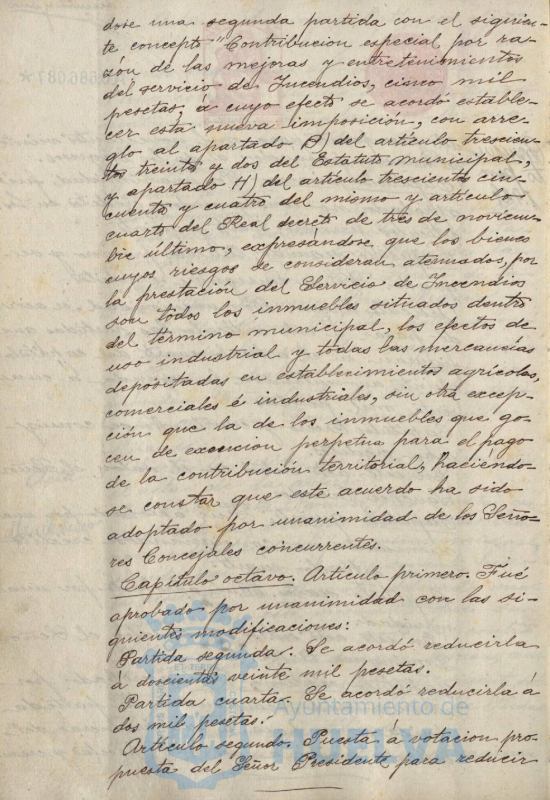 dose una segunda partida con el siguien-
te concepto "Contribucion especial por ra-
zón de las mejoras y entretenimientos
del servicio de Incendios, cinco mil
pesetas, a cuyo efecto se acordó estable-
cer esta nueva imposición, con arre-
glo al apartado B) del artículo trescien-
tos treinta y dos del Estatuto municipal,
y apartado H) del artículo trescientos cin-
cuenta y cuatro del mismo y artículo
cuarto del Real decreto de tres de noviem-
bre último, expresándose que los bienes
cuyos riesgos se consideran atenuados, por
la prestación del Servicio de Incendios
son todos los inmuebles situados dentro
del término municipal, los efectos de
uso industrial y todas las mercancías
depositadas en establecimientos agrícolas,
comerciales é industriales, sin otra excep-
ción que la de los inmuebles que go-
cen de exención perpetua para el pago
de la contribución territorial, haciendo-
se constar que este acuerdo ha sido
adoptado por unanimidad de los Seño-
res Concejales concurrentes.
Capítulo octavo. Artículo primero. Fué
aprobado por unanimidad con las si-
guientes modificaciones:
Partida segunda. Se acordó reducirla
á doscientas veinte mil pesetas.
Partida cuarta. Se acordó reducirla á
dos mil pesetas.
Ayuntamiento de
HUELVA
Artículo segundo. Puesta á votacion pro-
puesta del Señor Presidente para reducir